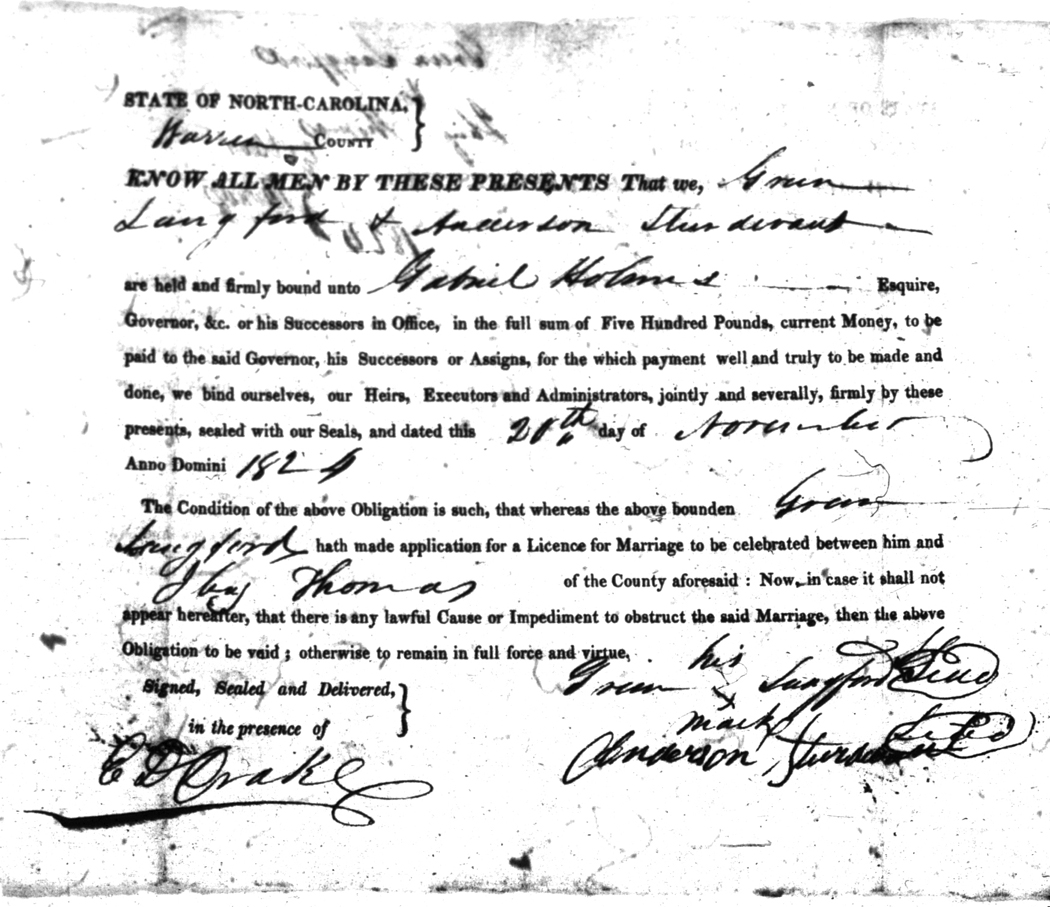 STATE OF NORTH-CAROLINA,
Warren COUNTY
KNOW ALL MEN BY THESE PRESENTS That we, Green
Langford & Anderson Sturdivant
are held and firmly bound unto Gabriel Holmes Esquire,
Governor, &c. or his Successors in Office, in the full sum of Five Hundred Pounds, current Money, to be
paid to the said Governor, his Successors or Assigns, for the which payment well and truly to be made and
done, we bind ourselves, our Heirs, Executors and Administrators, jointly and severally, firmly by these
presents, sealed with our Seals, and dated this 20th day of November
Anno Domini 1824
The Condition of the above Obligation is such, that whereas the above bounden Green
Langford hath made application for a Licence for Marriage to be celebrated between him and
Thomas of the County aforesaid : Now, in case it shall not
appear hereafter, that there is any lawful Cause or Impediment to obstruct the said Marriage, then the above
Obligation to be void ; otherwise to remain in full force and virtue,
his
Green x Langford Seal
mark
Signed, Sealed and Delivered,
in the presence of
Anderson Sturdivant
E D Drake